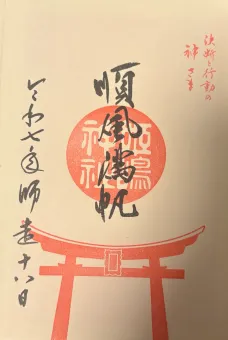 決断と行動の
神さま
順風満帆
神社
令和七年師走十八日